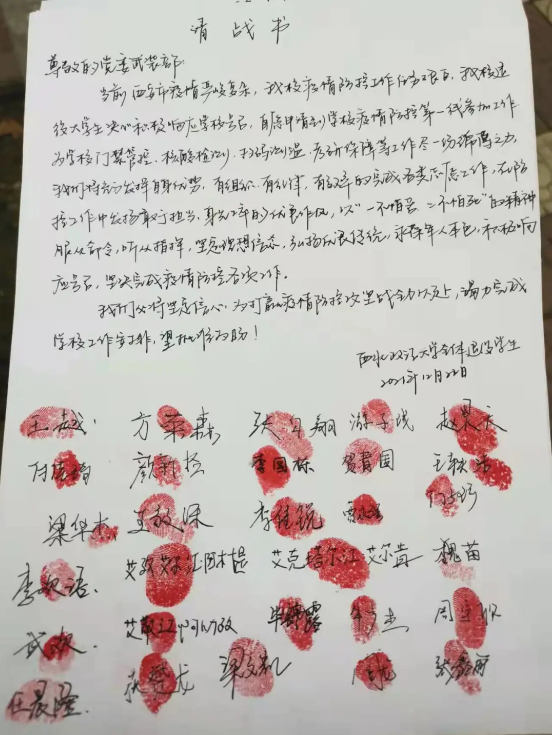 请战书
尊敬的党委武装部:
当前西安市疫情严峻复杂,我校疫情防控工作任务艰巨,我校退
役大学生决心积极响应学校号召,自愿申请到学校疫情防控第一线参加工作
为学校门禁管控、核酸检测、扫码测温、后勤保障等工作尽一份绵薄之力,
我们将充分发挥自身优势,有组织、有纪律,有效率的完成各类应急工作,在防
控工作中发扬敢于担当,身先士卒的优良作风,以"一不怕苦、二不怕死"的精神
服从命令,听从指挥,坚定理想信念,弘扬优良传统,永葆军人本色,积极响
应号召,坚决完成疫情防控各项工作。
我们必将坚定信心,为打赢疫情防控攻坚战全力以赴,竭力完成
学校工作安排,望批准为盼!
西北政法大学全体退役学生
2021年12月22日
王越 方荣森 张 翔 游子 赵
颜 李国栋 贺 国 王
梁华杰 王 李佳锐
李 艾 江 艾克 尔江 艾尔肯 魏苗
武欢 艾 江 露 杰 周
任晨隆 龙 梁 龙 张 丽